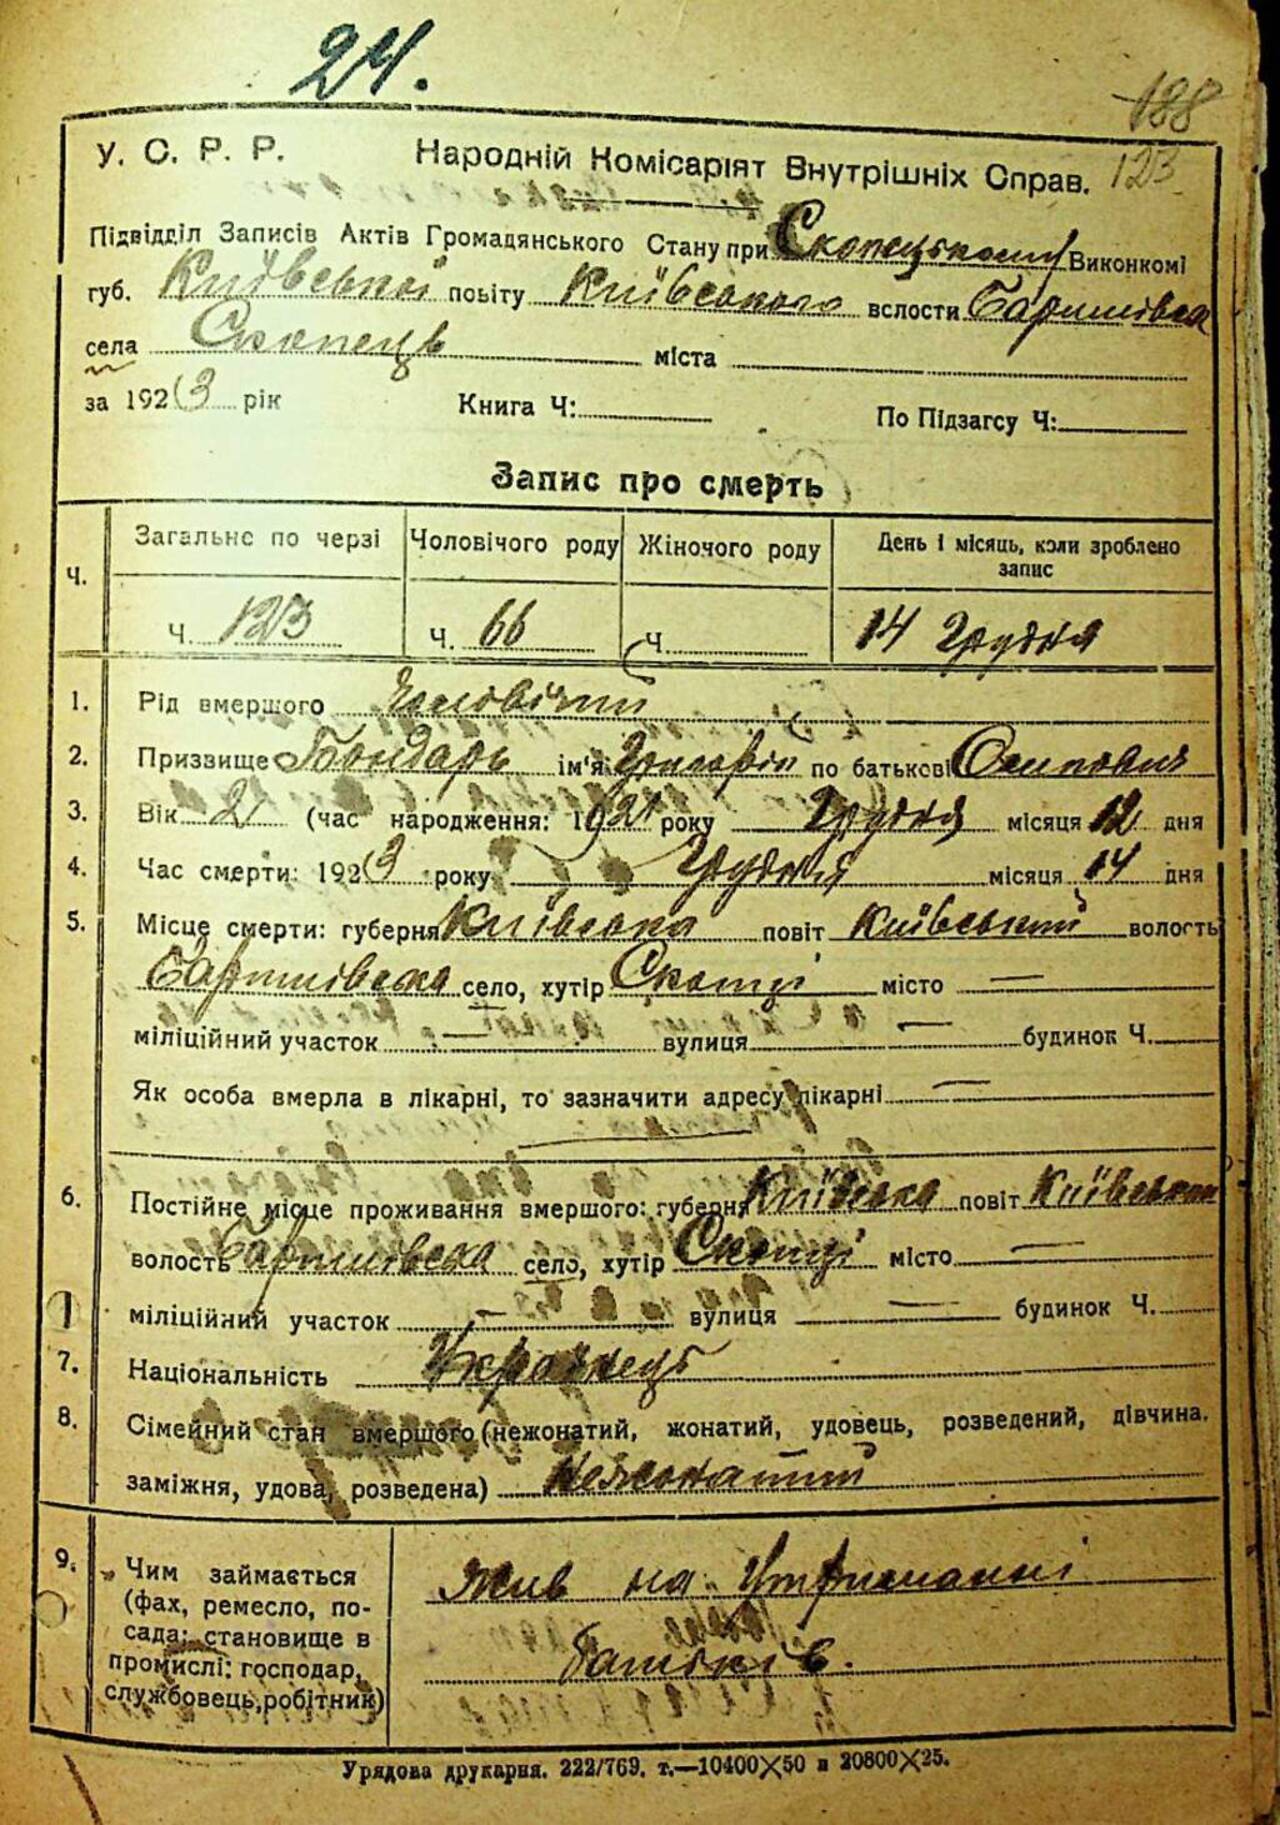 24.
188
123
У. С. Р. Р. Народній Комісаріят Внутрішніх Справ.
Підвідділ Записів Актів Громадянського Стану при Скопецькому Виконкомі
губ. Київської повіту Київського волости Баришівска
села Скопець міста
за 1923 рік Книга Ч: По Підзагсу Ч:
Запис про смерть
Ч. Загальне по черзі Чоловічого роду Жіночого роду День і місяць, коли зроблено запис
Ч. 123 Ч. 66 Ч. 14 Грудня
1. Рід вмершого Чоловічий
2. Призвище Бондарь ім'я Григорій по батькові Осипович
3. Вік 2 (час народження: 1921 року Грудня місяця 12 дня
4. Час смерти: 1923 року Грудня місяця 14 дня
5. Місце смерти: губерня Київська повіт Київський волость
Баришівська село, хутір Скопці місто —
міліційний участок — вулиця — будинок Ч.
Як особа вмерла в лікарні, то зазначити адресу лікарні —
6. Постійне місце проживання вмершого: губерня Київська повіт Київський
волость Баришівска село, хутір Скопці місто —
міліційний участок — вулиця — будинок Ч.
7. Національність Українець
8. Сімейний стан вмершого (нежонатий, жонатий, удовець, розведений, дівчина.
заміжня, удова, розведена) Нежонатий
9. Чим займається
(фах, ремесло, по-
сада; становище в
промислі: господар,
службовець, робітник)
Жив на Утриманні
батьків.
Урядова друкарня. 222/769. т.—10400×50 и 20800×25.